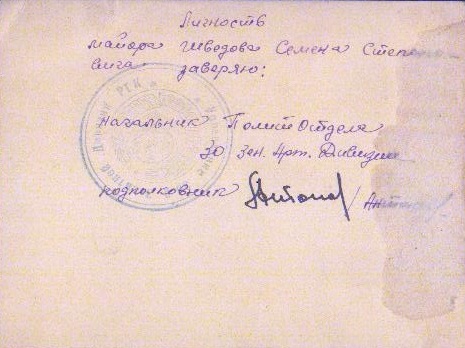 Личность
майора Шведова Семена Степано
вича заверяю:
Начальник Полит Отдела
30 Зен. Арт. Дивизии
подполковник Антонов